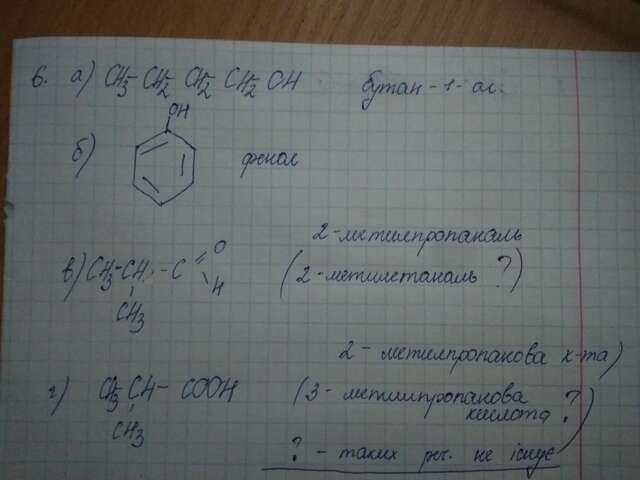 6. а) CH3-CH2-CH2-CH2-OH бутан-1-ол.
OH
б) фенол
2-метилпропаналь
O
в) CH3-CH-C (2-метилетаналь ?)
H
CH3
2-метилпропанова к-та)
г) CH3-CH-COOH (3-метилпропанова
кислота ?)
CH3
? - таких реч. не існує